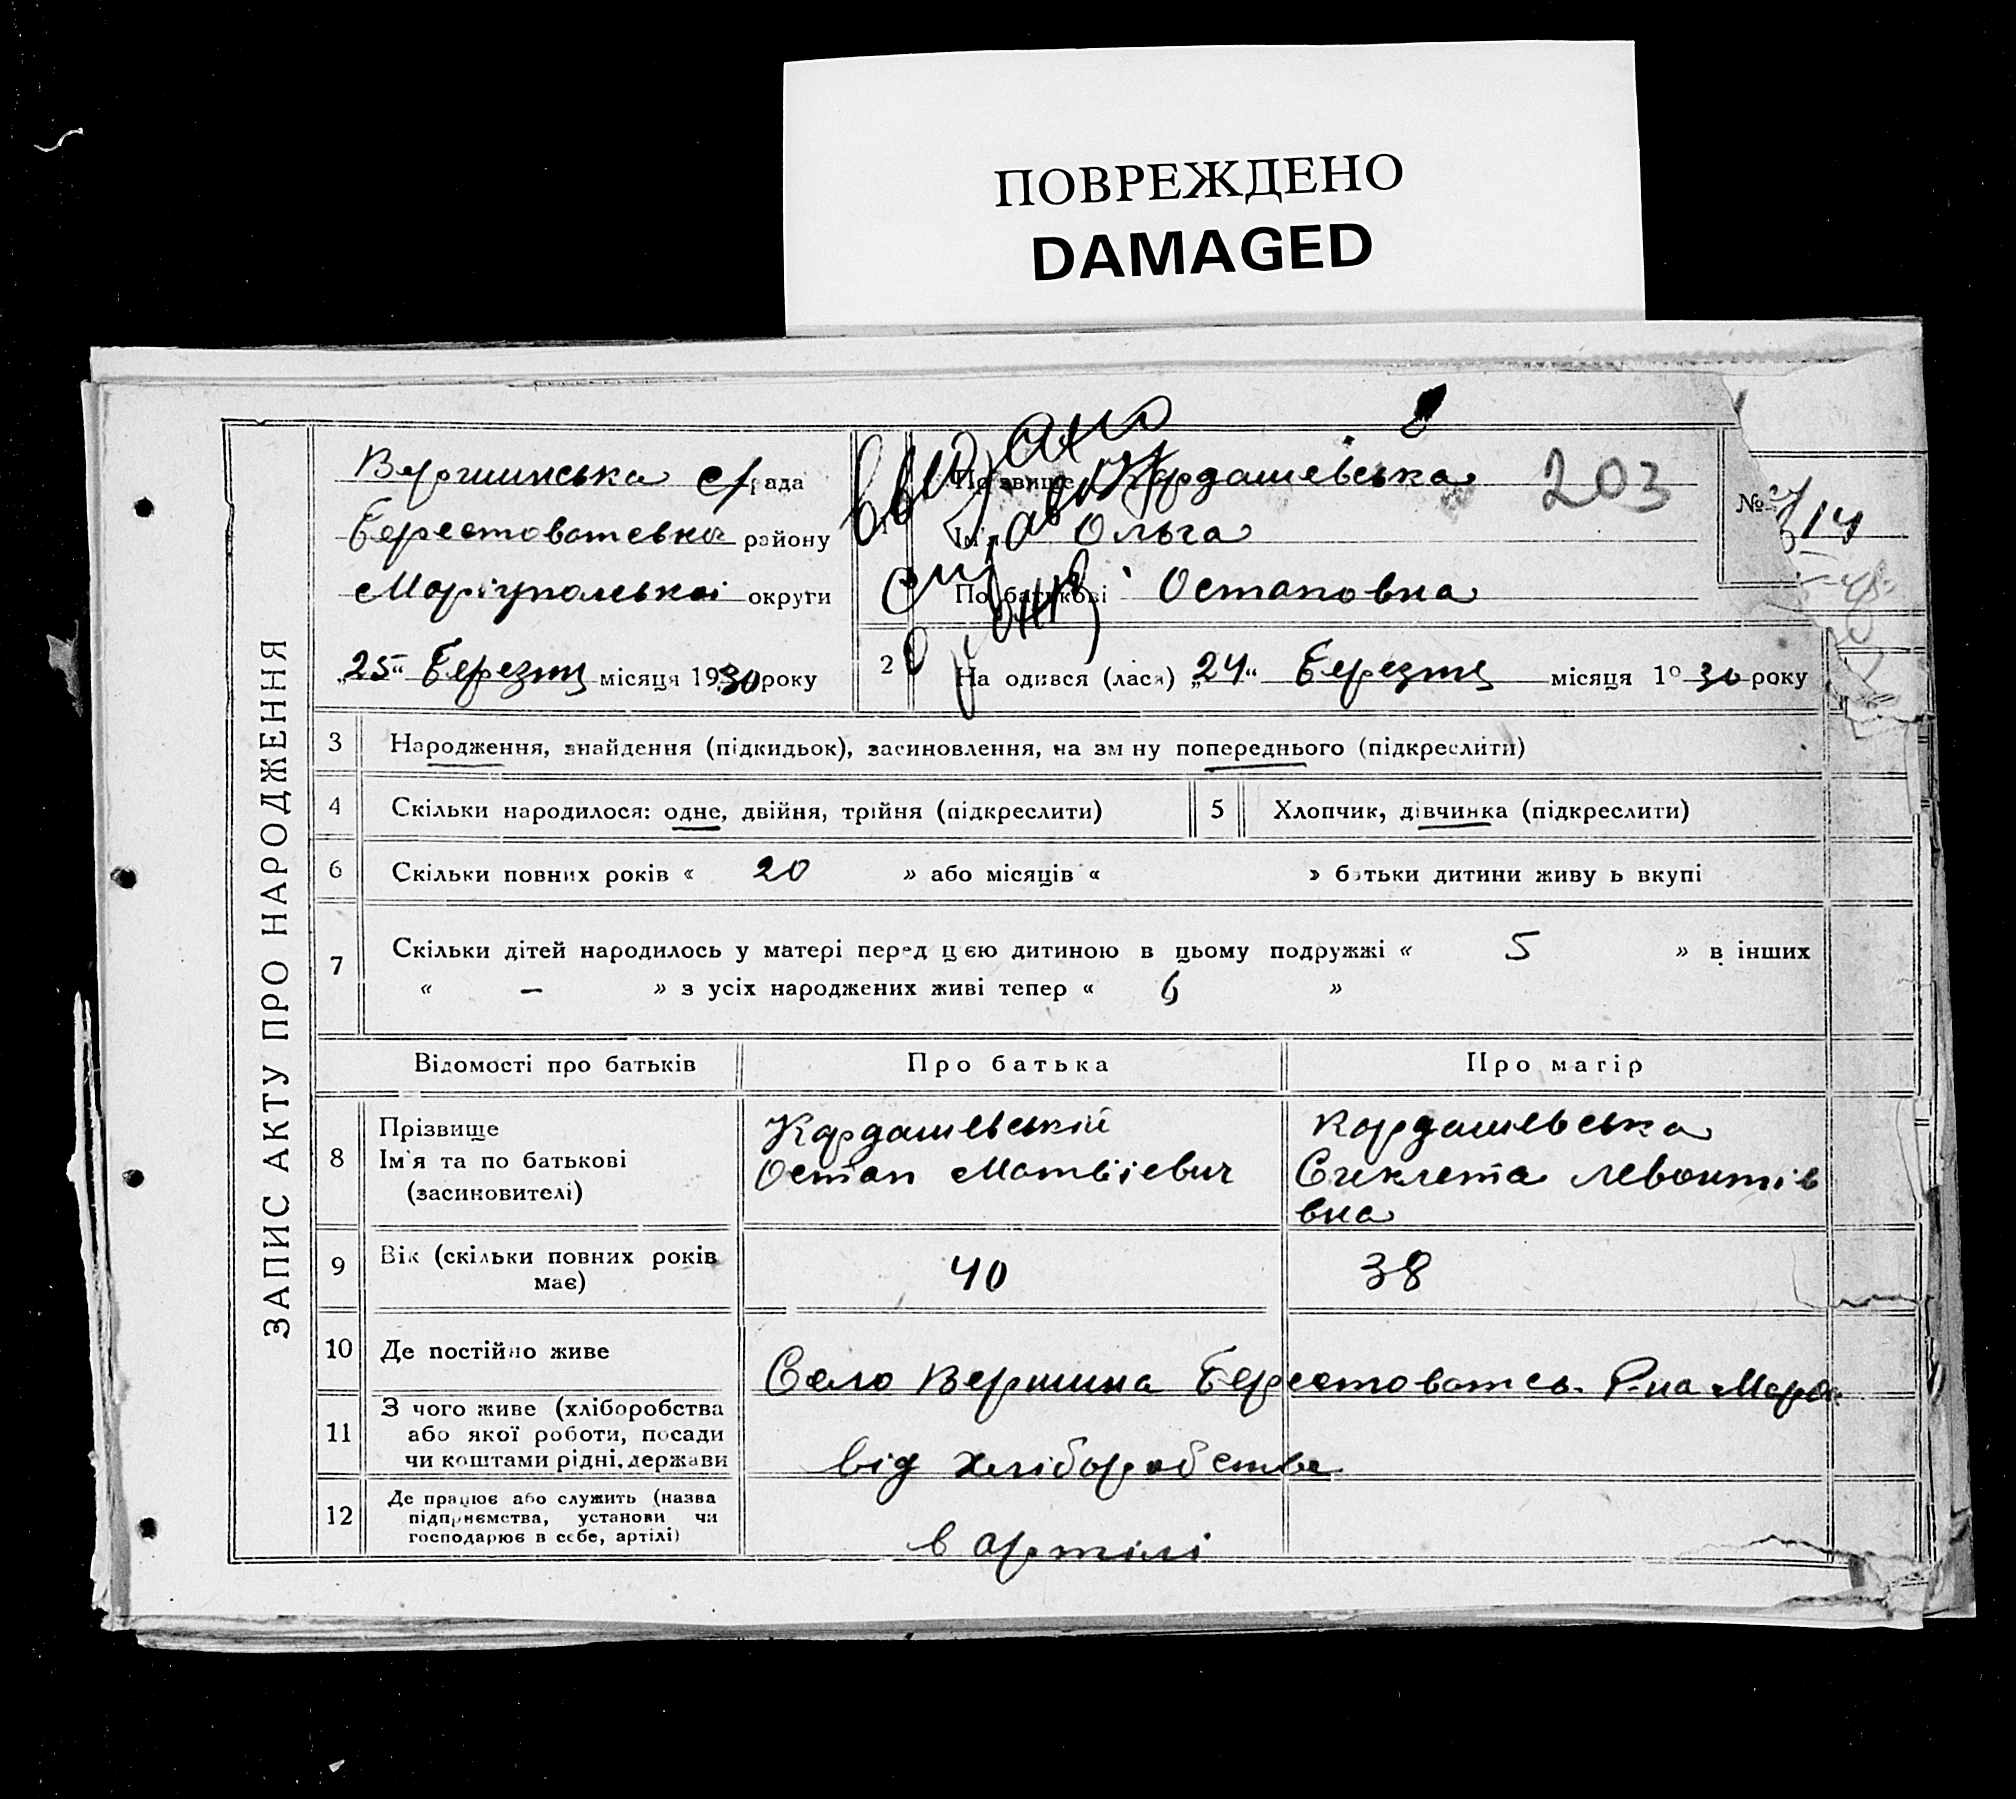 ПОВРЕЖДЕНО
DAMAGED
ЗАПИС АКТУ ПРО НАРОДЖЕННЯ
Вершинська с/рада
Берестоватська району
Маріупольскої округи
„25“ Березня місяця 1930 року
Прізвище Кардашевська
203
Ім'я Ольга
По батькові Остаповна
№ 14
2 На одився (лася) „24“ Березня місяця 1930 року
3 Народження, знайдення (підкидьок), засиновлення, на зміну попереднього (підкреслити)
4 Скільки народилося: одне, двійня, трійня (підкреслити)
5 Хлопчик, дівчинка (підкреслити)
6 Скільки повних років « 20 » або місяців « » батьки дитини живуть вкупі
7 Скільки дітей народилось у матері перед цією дитиною в цьому подружжі « 5 » в інших
« – » з усіх народжених живі тепер « 6 »
Відомості про батьків
Про батька
Про матір
8 Прізвище
Ім'я та по батькові
(засиновителі)
Кардашевській
Остап Матвіевич
Кардашевська
Сиклета Левонтів
вна
9 Вік (скільки повних років
має)
40
38
10 Де постійно живе
Село Вершина Берестоватсь. Р-на
11 З чого живе (хліборобства
або якої роботи, посади
чи коштами рідні, держави
від хліборобства
12 Де працює або служить (назва
підприємства, установи чи
господарює в себе, артілі)
в артілі